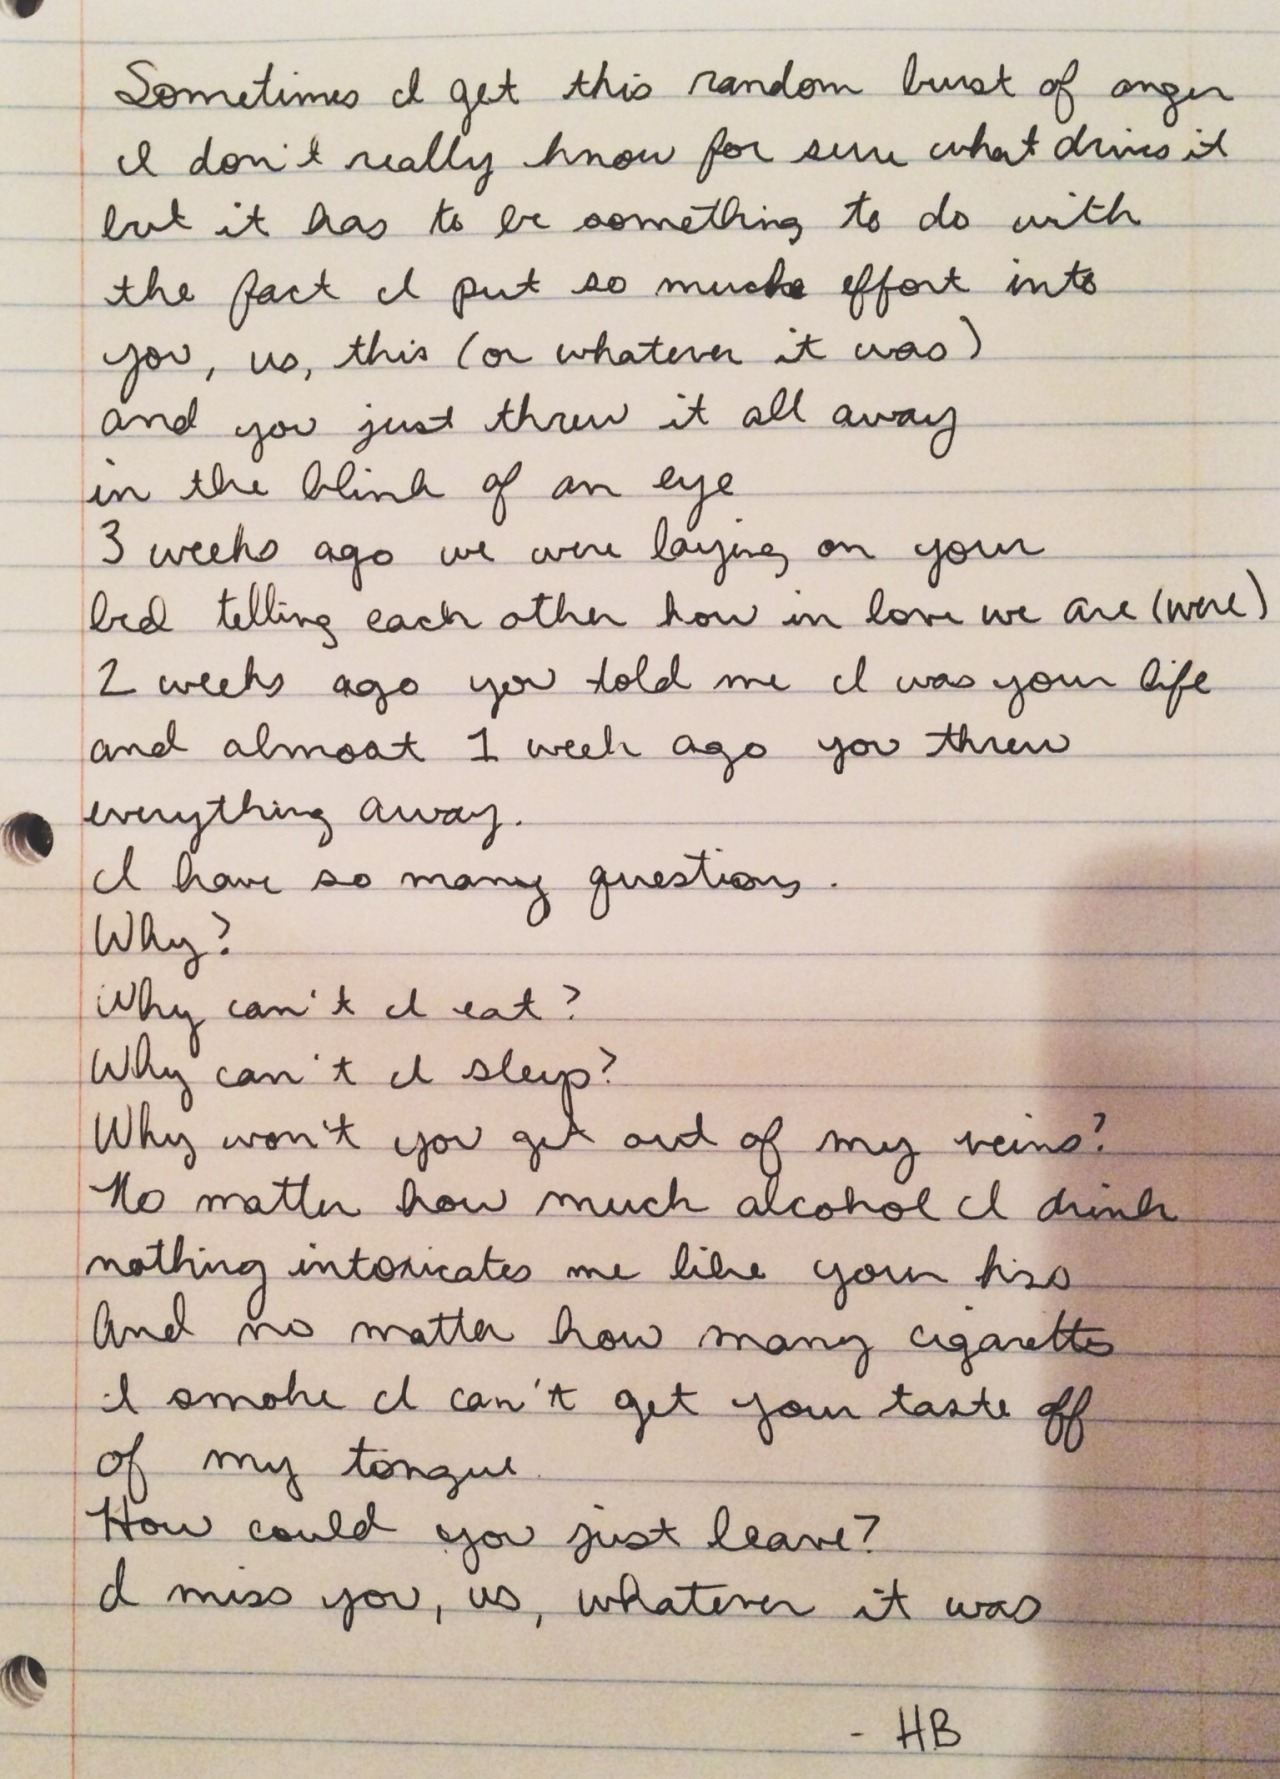 Sometimes I get this random burst of anger
I don't really know for sure what drives it
but it has to be something to do with
the fact I put so much effort into
you, us, this (or whatever it was)
and you just threw it all away
in the blink of an eye
3 weeks ago we were laying on your
bed telling each other how in love we are (were)
2 weeks ago you told me I was your life
and almost 1 week ago you threw
everything away.
I have so many questions.
Why?
Why can't I eat?
Why can't I sleep?
Why won't you get out of my veins?
No matter how much alcohol I drink
nothing intoxicates me like your kiss
And no matter how many cigarettes
I smoke I can't get your taste off
of my tongue
How could you just leave?
I miss you, us, whatever it was
- HB